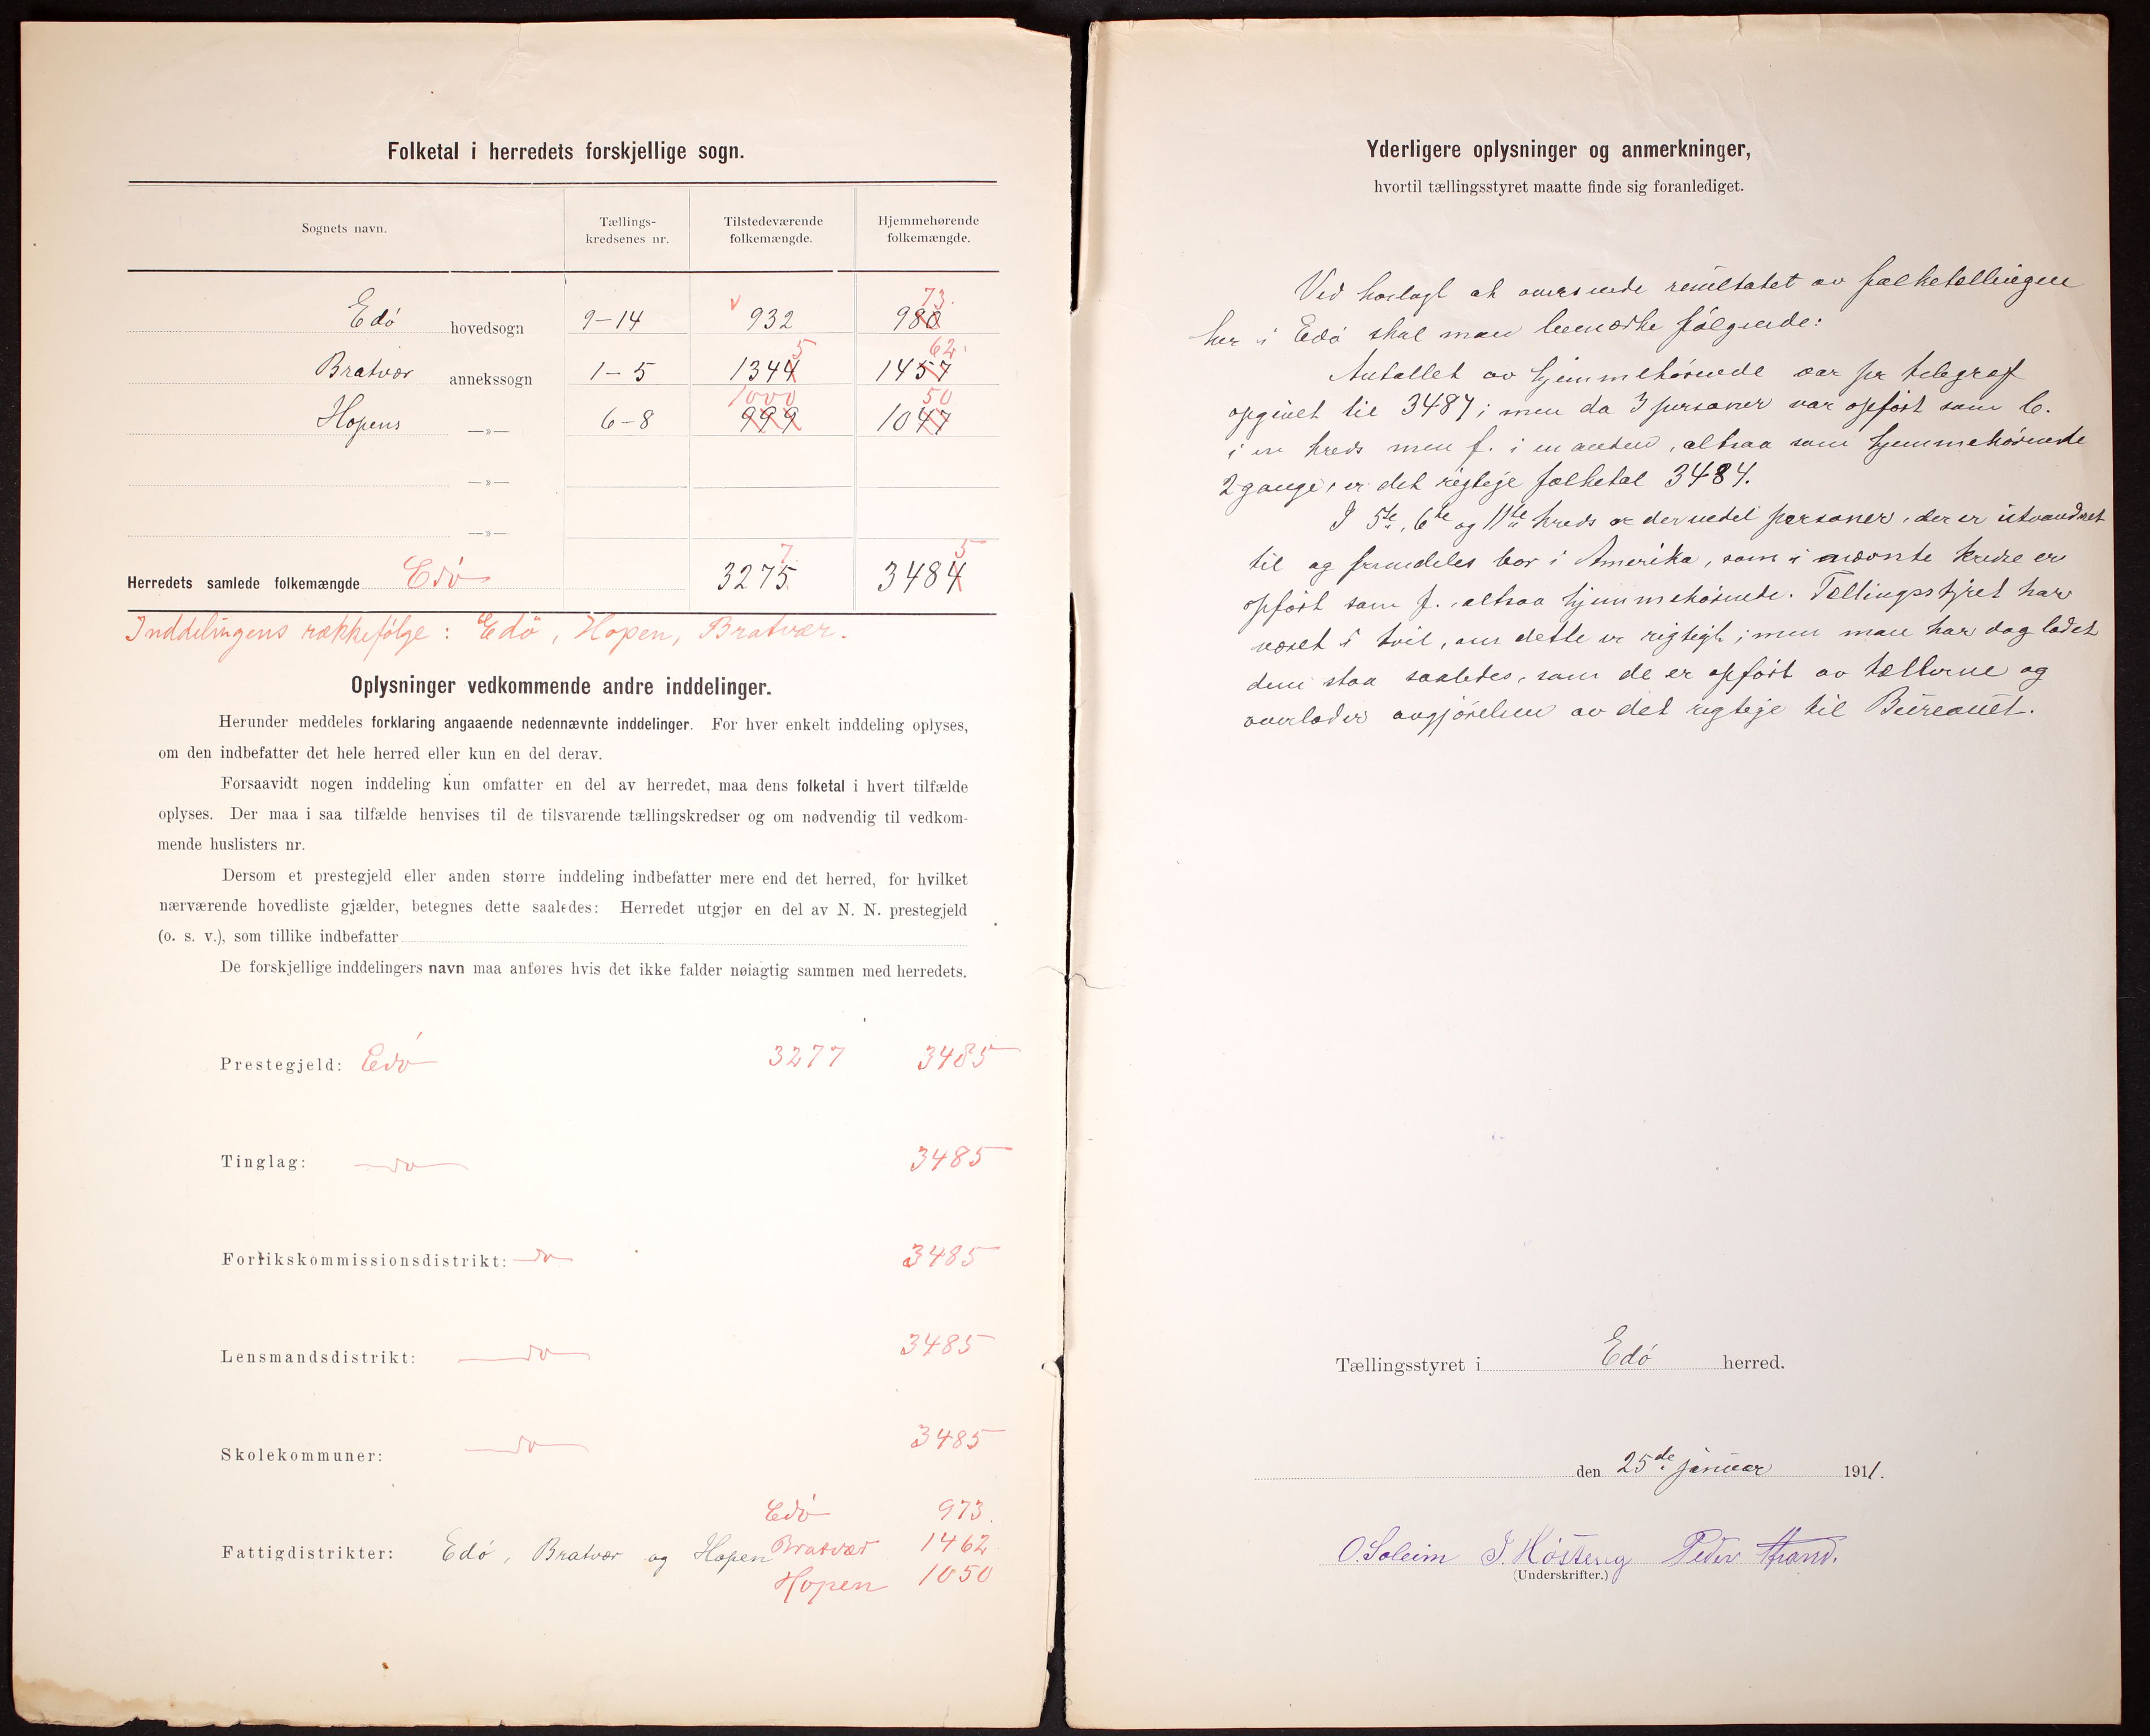 Folketal i herredets forskjellige sogn.
Sognets navn.
Tællings-
kredsenes nr.
Tilstedeværende
folkemængde.
Hjemmehørende
folkemængde.
73.
Edö hovedsogn 9-14 v 932 980
5 62.
Bratvær annekssogn 1-5 1344 1457
1000 50
Hopens —»— 6-8 999 1047
—»—
—»—
7 5
Herredets samlede folkemængde Edö 3275 3484
Inddelingens rækkefølge: Edö, Hopen, Bratvær.
Oplysninger vedkommende andre inddelinger.
Herunder meddeles forklaring angaaende nedennævnte inddelinger. For hver enkelt inddeling oplyses,
om den indbefatter det hele herred eller kun en del derav.
Forsaavidt nogen inddeling kun omfatter en del av herredet, maa dens folketal i hvert tilfælde
oplyses. Der maa i saa tilfælde henvises til de tilsvarende tællingskredser og om nødvendig til vedkom-
mende huslisters nr.
Dersom et prestegjeld eller anden større inddeling indbefatter mere end det herred, for hvilket
nærværende hovedliste gjælder, betegnes dette saaledes: Herredet utgjør en del av N. N. prestegjeld
(o. s. v.), som tillike indbefatter
De forskjellige inddelingers navn maa anføres hvis det ikke falder nøiagtig sammen med herredets.
Prestegjeld: Edö 3277 3485
Tinglag: —do— 3485
Forlikskommissionsdistrikt: —do— 3485
Lensmandsdistrikt: —do— 3485
Skolekommuner: —do— 3485
Edö 973.
Fattigdistrikter: Edö, Bratvær og Hopen Bratvær 1462.
Hopen 1050
Yderligere oplysninger og anmerkninger,
hvortil tællingsstyret maatte finde sig foranlediget.
Ved hoslagt at oversende resultatet av folketællingen
her i Edö skal man bemærke fölgende:
Antallet av hjemmehörende var pr telegraf
opgivet til 3487; men da 3 personer var opfört som b.
i en kreds men f. i en anden, altsaa som hjemmehörende
2 gange, er det rigtige folketal 3484.
I 5te, 6te og 11te kreds er dernedel personer, der er utvandret
til og fremdeles bor i Amerika, som i nævnte kredse er
opfört som f. altsaa hjemmehörende. Tællingsstyret har
været i tvil, om dette er rigtigt; men man har dog ladet
dem staa saaledes, som de er opfört av tællerne og
overlader avgjörelsen av det rigtige til Büreauet.
Tællingsstyret i Edö herred.
den 25de januar 1911.
O. Soleim J. Hösteng Peder Strand.
(Underskrifter.)